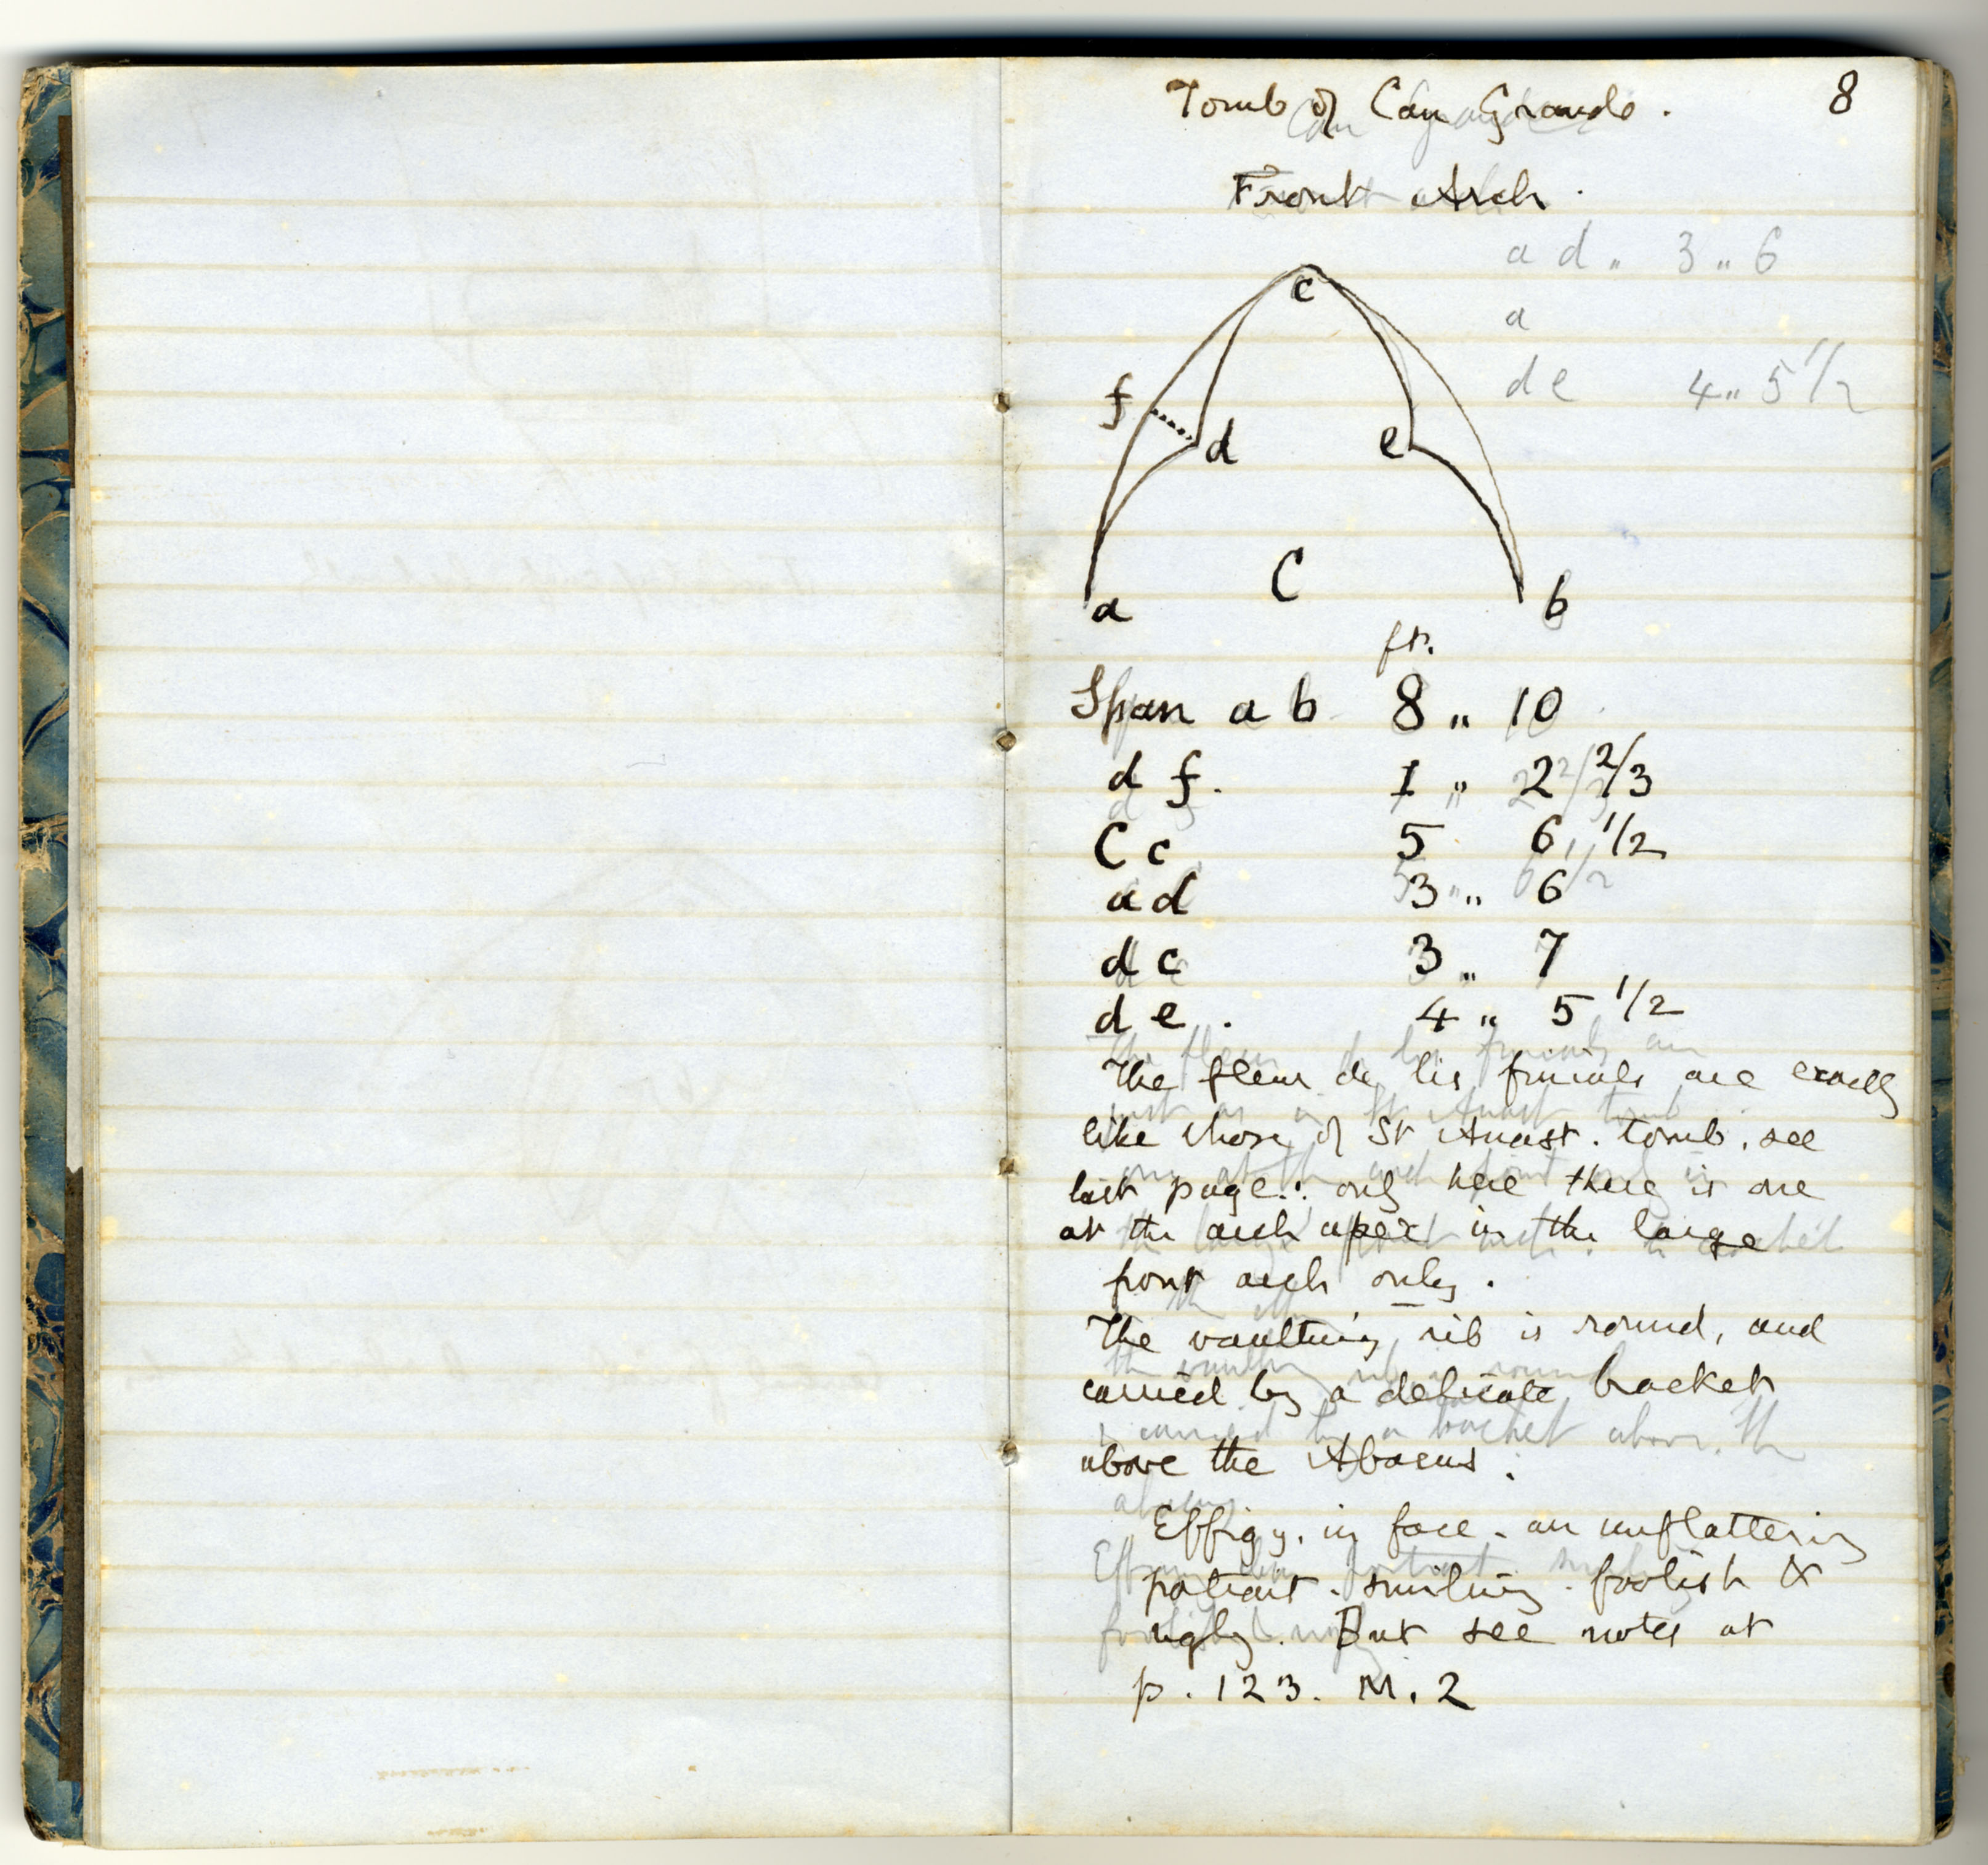 Tomb of Can Grande. 8
Front Arch.
a d " 3 " 6
a
d e 4 " 5 1/2
c
f
d e
C
a b
ft.
Span a b 8 " 10
d f. 1 " 2 2/3
C c 5 6 1/2
a d 3 " 6
d c 3 " 7
d e. 4 " 5 1/2
The fleur de lis finials are exactly
like those of St Anast. tomb, see
last page: only here there is one
at the arch apex in the large
front arch only.
The vaulting rib is round, and
carried by a delicate bracket
above the Abacus.
Effigy, in face - an unflattering
portrait. smiling. foolish &
ugly. But see notes at
p. 123. M. 2